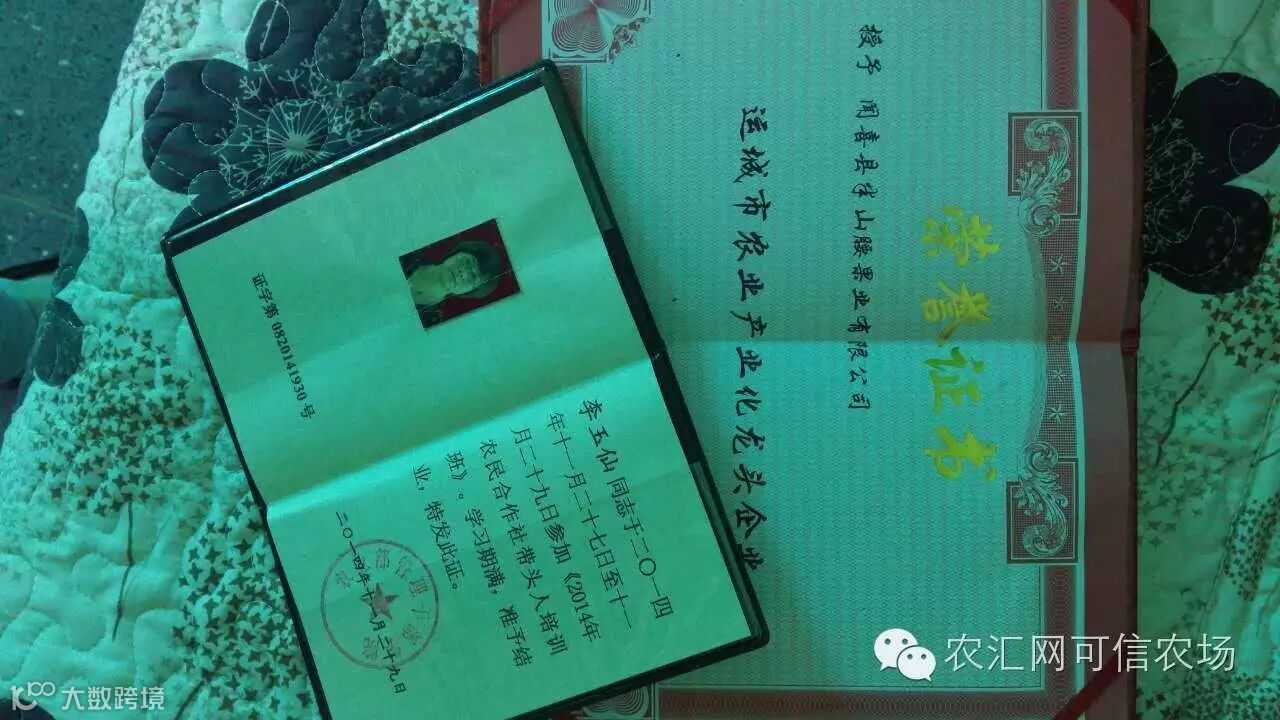 荣誉证书
授予 闻喜县半山腰果业有限公司
运城市农业产业化龙头企业
证字第 0820141930 号
李玉仙 同志于二〇一四
年十一月二十七日至十一
月二十九日参加《2014年
农民合作社带头人培训
班》。学习期满，准予结
业，特发此证。
二〇一四年十一月二十九日
农汇网可信农场
大数跨境